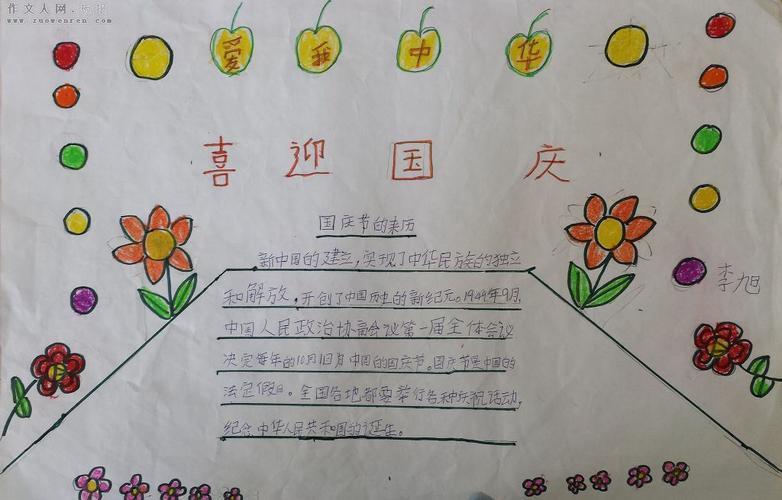 作文人网·
www.zuowenren.com
爱我中华
喜迎国庆
国庆节的来历
新中国的建立,实现了中华民族的独立
和解放,开创了中国历史的新纪元。1949年9月,
中国人民政治协商会议第一届全体会议
决定每年的10月1日为中国的国庆节。国庆节是中国的
法定假日。全国各地都要举行各种庆祝活动,
纪念中华人民共和国的诞生。
李旭